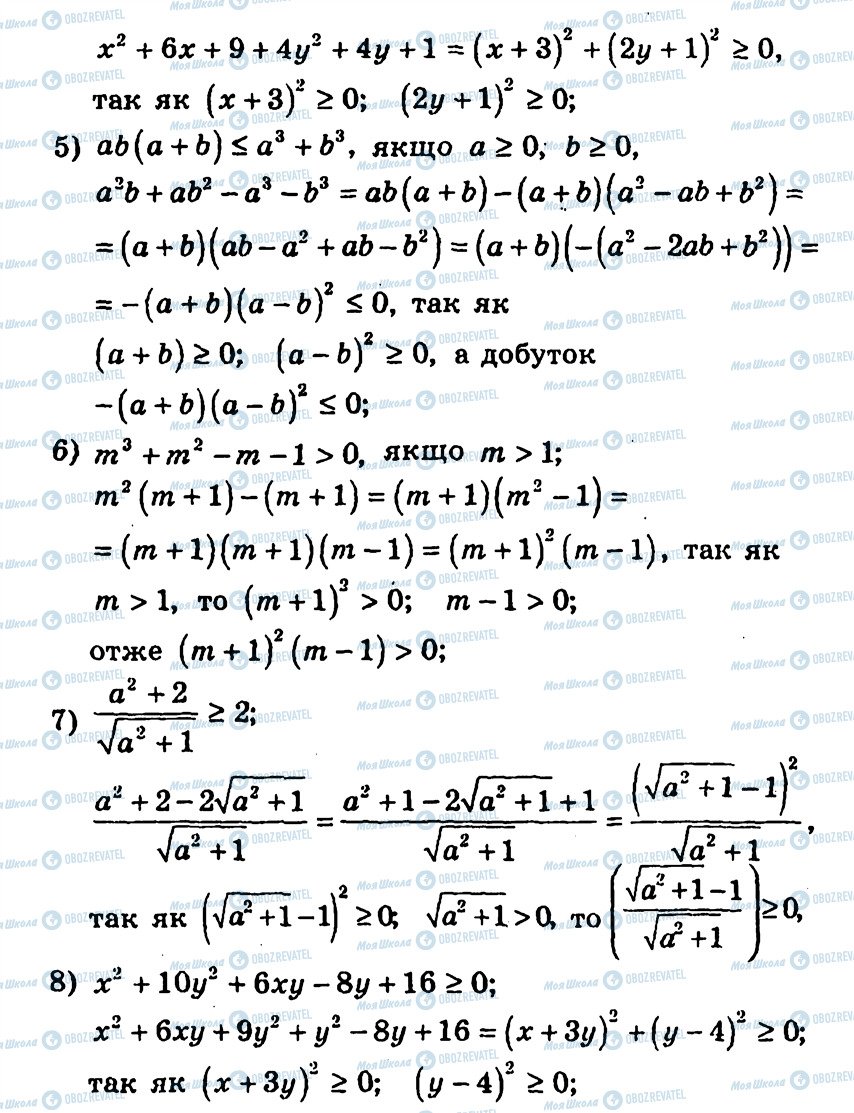 x² + 6x + 9 + 4y² + 4y + 1 = (x + 3)² + (2y + 1)² ≥ 0,
так як (x + 3)² ≥ 0; (2y + 1)² ≥ 0;
5) ab(a + b) ≤ a³ + b³, якщо a ≥ 0; b ≥ 0,
a²b + ab² − a³ − b³ = ab(a + b) − (a + b)(a² − ab + b²) =
= (a + b)(ab − a² + ab − b²) = (a + b)(−(a² − 2ab + b²)) =
= −(a + b)(a − b)² ≤ 0, так як
(a + b) ≥ 0; (a − b)² ≥ 0, а добуток
−(a + b)(a − b)² ≤ 0;
6) m³ + m² − m − 1 > 0, якщо m > 1;
m²(m + 1) − (m + 1) = (m + 1)(m² − 1) =
= (m + 1)(m + 1)(m − 1) = (m + 1)²(m − 1), так як
m > 1, то (m + 1)² > 0; m − 1 > 0;
отже (m + 1)²(m − 1) > 0;
7) (a² + 2)/√(a² + 1) ≥ 2;
(a² + 2 − 2√(a² + 1))/√(a² + 1) = (a² + 1 − 2√(a² + 1) + 1)/√(a² + 1) = (√(a² + 1) − 1)²/√(a² + 1),
так як (√(a² + 1) − 1)² ≥ 0; √(a² + 1) > 0, то ((√(a² + 1) − 1)/√(a² + 1)) ≥ 0,
8) x² + 10y² + 6xy − 8y + 16 ≥ 0;
x² + 6xy + 9y² + y² − 8y + 16 = (x + 3y)² + (y − 4)² ≥ 0;
так як (x + 3y)² ≥ 0; (y − 4)² ≥ 0;